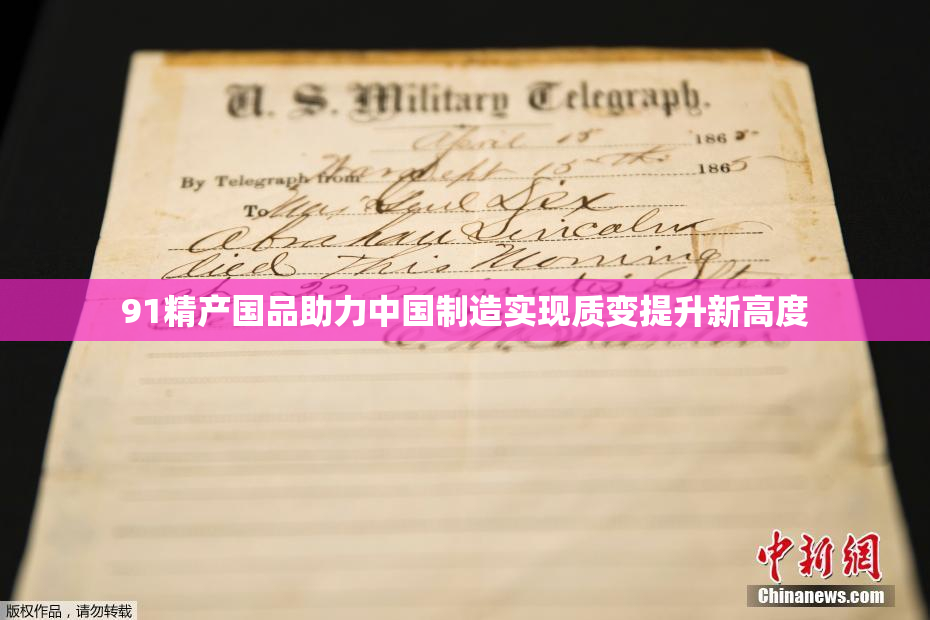 U. S. Military Telegraph.
April 15 1865
By Telegraph from War Dept 15th 1865
To Maj Genl Dix
Abraham Lincoln
died This Morning
22 minutes after
91精产国品助力中国制造实现质变提升新高度
中新网
Chinanews.com
版权作品，请勿转载